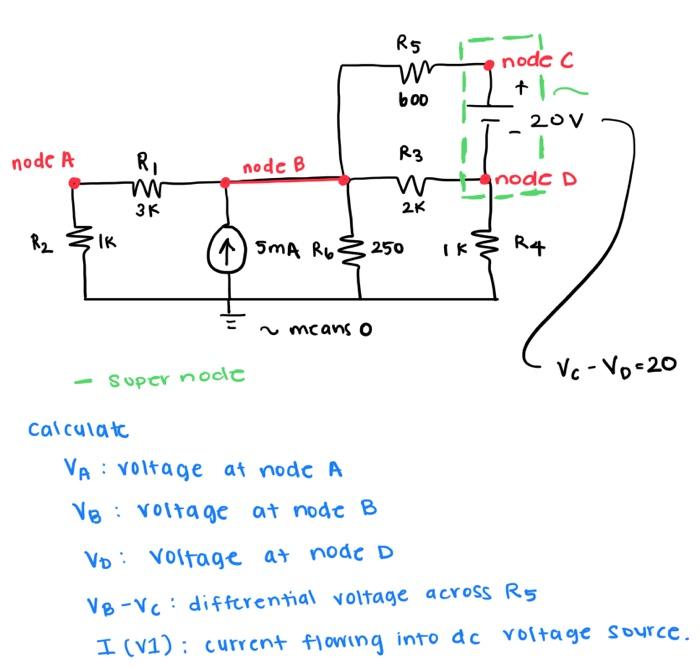 R5
node C
600
+
- 20V
node A
R1
node B
R3
node D
3K
2K
R2
1K
5mA
R6
250
1K
R4
~ means 0
VC - VD = 20
- super node
calculate
VA : voltage at node A
VB : voltage at node B
VD : voltage at node D
VB-VC : differential voltage across R5
I (V1) : current flowing into dc voltage source.